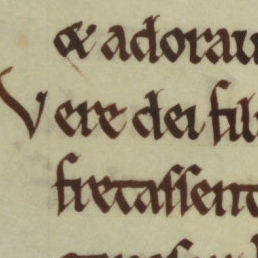 & adorau
Vere dei fil
fretassent